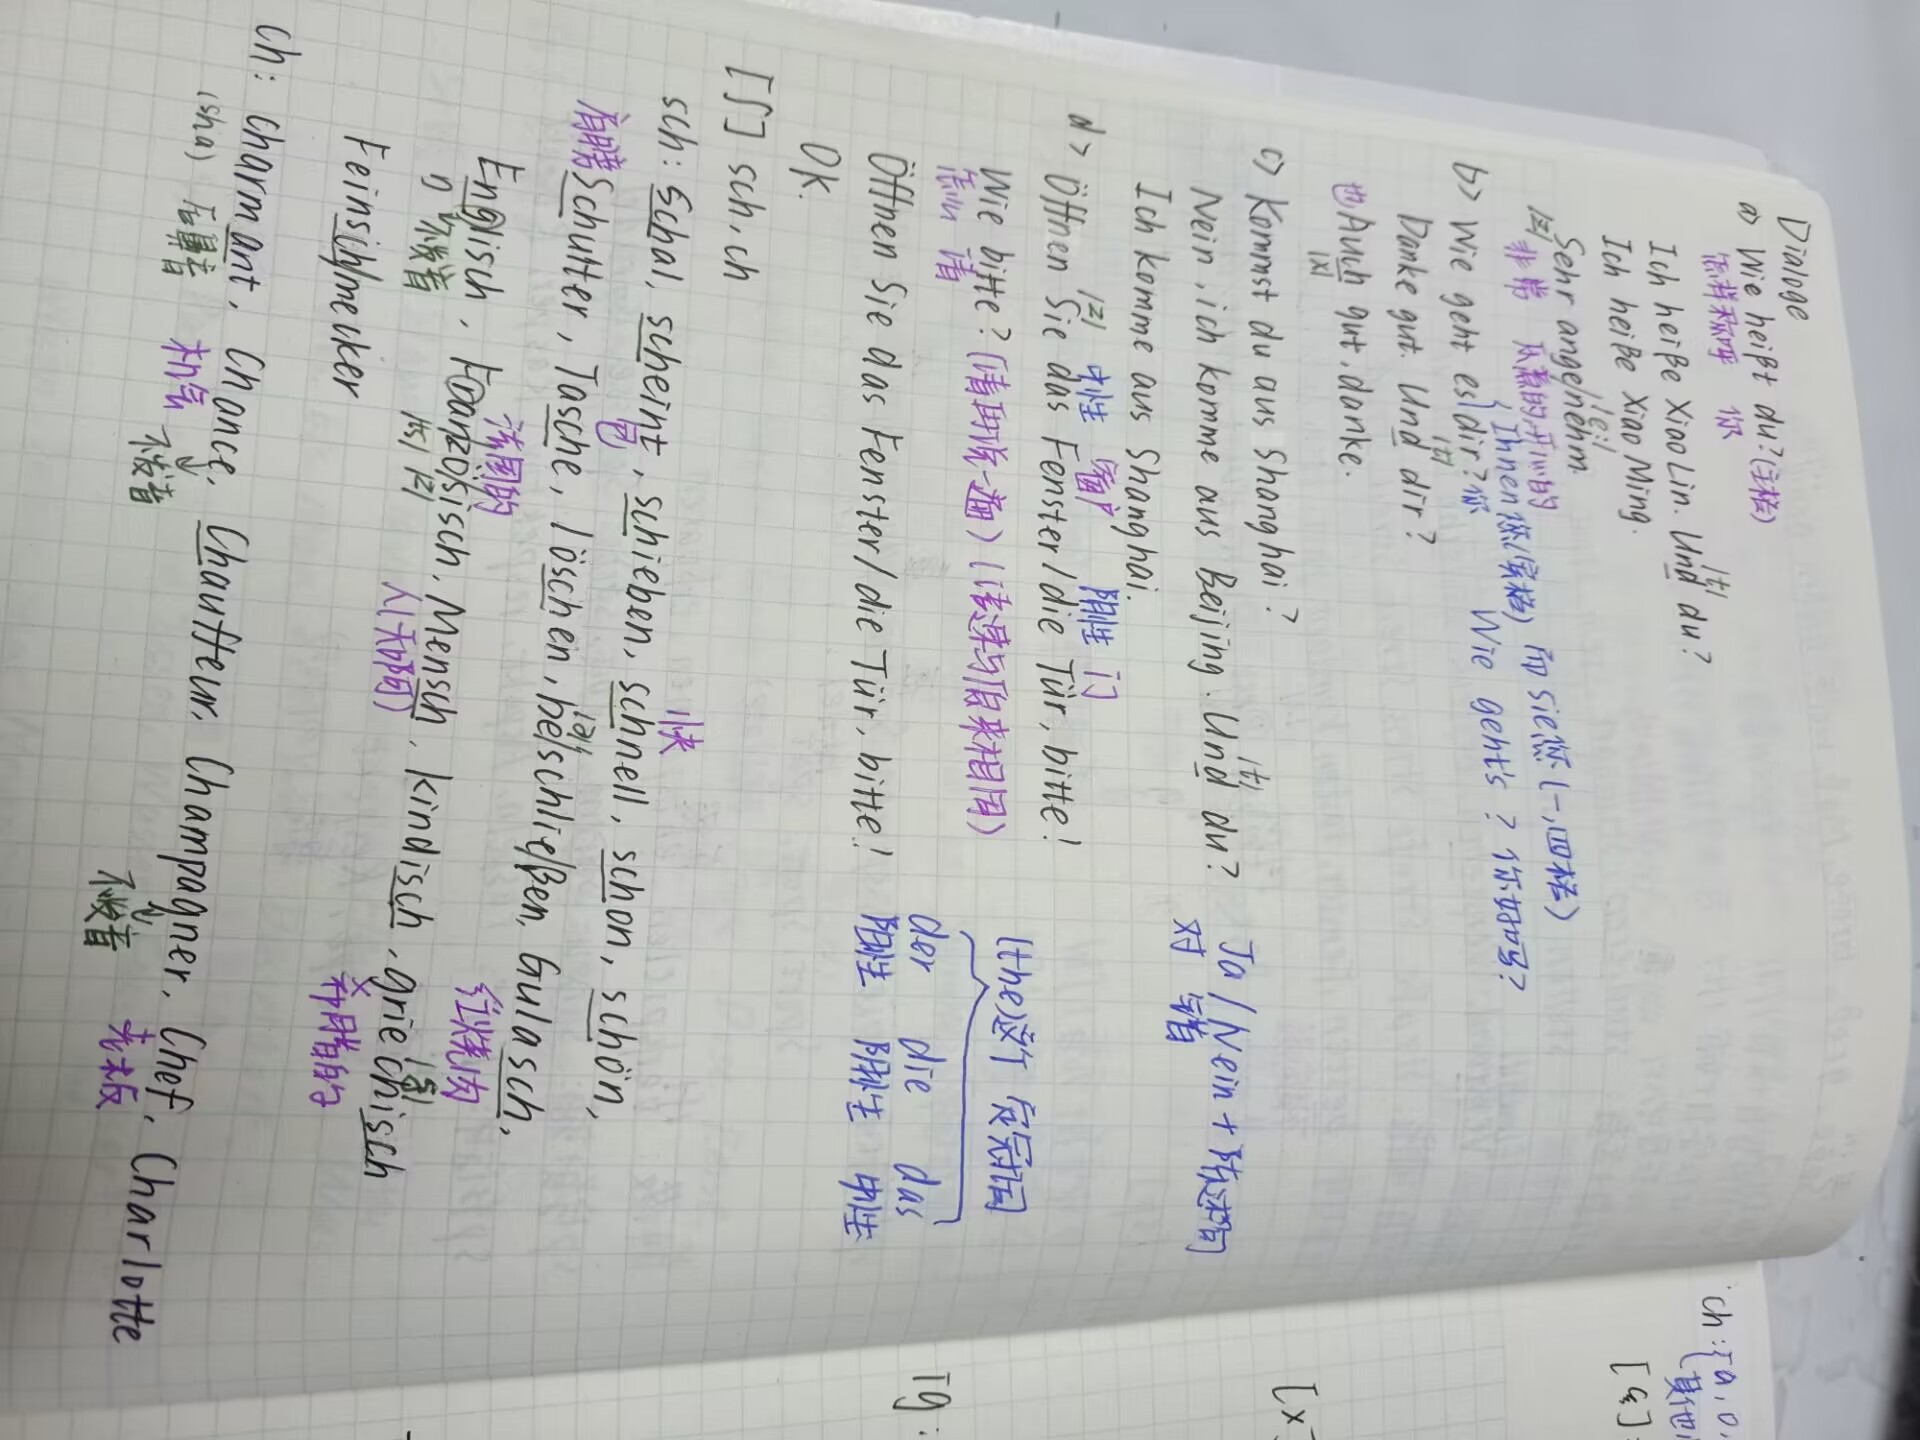 Dialoge
a> Wie heißt du? (主格)
怎样称呼 你
Ich heiße XiaoLin. Und du?
|t|
Ich heiße Xiao Ming.
Sehr angenehm.
|z| |ei|
非常 惬意的,开心的
b> Wie geht es dir? 你
Ihnen 您(宾格) 和 Sie 您 (一,四格)
Wie geht's ? 你好吗?
Danke gut. Und dir?
|t|
也 Auch gut, danke.
|x|
c> Kommst du aus Shanghai ?
Nein, ich komme aus Beijing. Und du?
|t|
Ja / Nein + 陈述句
对 写着
Ich komme aus Shanghai.
d> Öffnen Sie das Fenster / die Tür, bitte!
|z| 中性 窗户 阴性 门
Wie bitte? (请再说一遍) (读法与后来相同)
怎么 请
Öffnen Sie das Fenster / die Tür, bitte!
OK.
(the)这个 定冠词
der die das
阳性 阴性 中性
[ʃ] sch, ch
sch: Schal, scheint, schieben, schnell, schon, schön,
快
肩膀 Schulter, Tasche, löschen, beischließen, Gulasch,
包 红烧肉
Englisch, Französisch, Mensch, kindisch, griechisch
不发音 法国的 |ts| |z| 人(天啊) 希腊的
Feinschmecker
ch: charmant, Chance, Chauffeur, Champagner, Chef, Charlotte
(sha) 后鼻音 机会 不发音 不发音 老板
ch: a, o,
[x